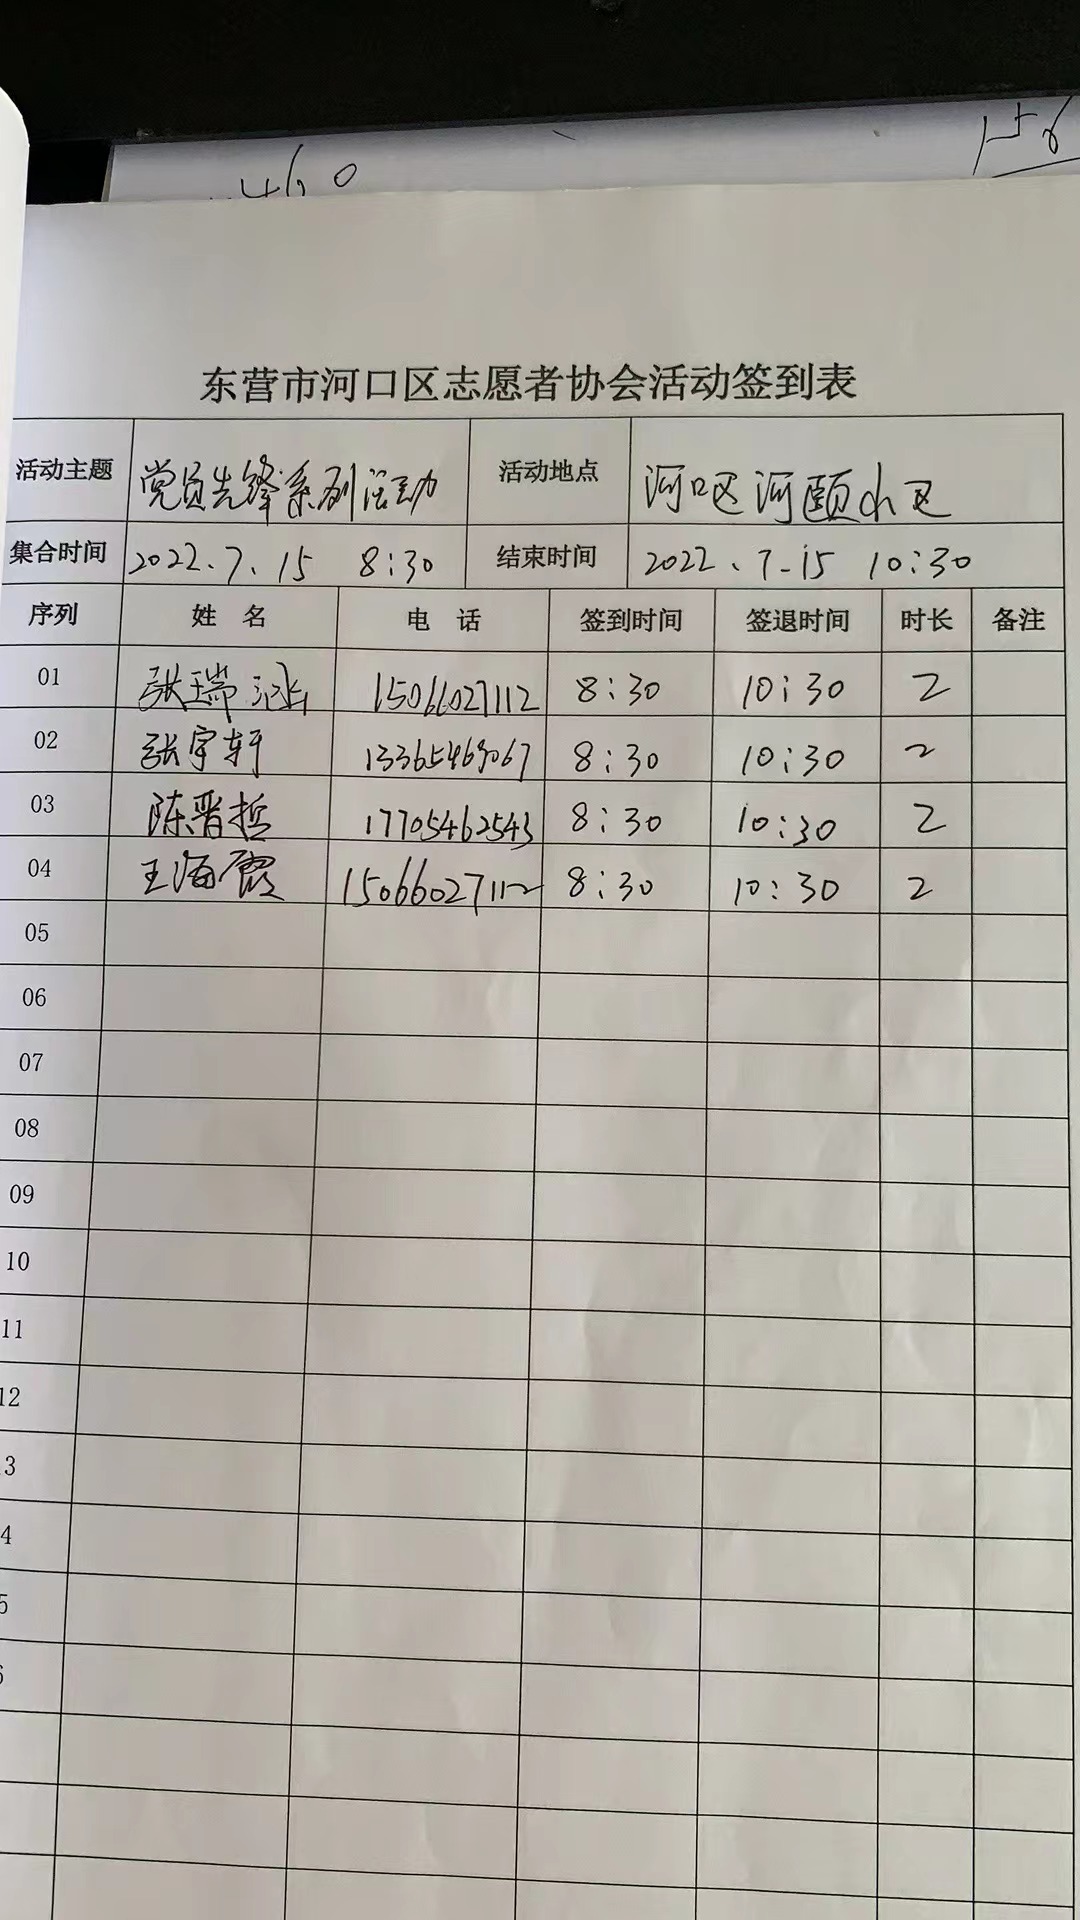 460
东营市河口区志愿者协会活动签到表
活动主题 党员先锋系列活动 活动地点 河口区河颐小区
集合时间 2022.7.15 8:30 结束时间 2022.7.15 10:30
序列 姓名 电话 签到时间 签退时间 时长 备注
01 张瑞涵 15066027112 8:30 10:30 2
02 张宇轩 8:30 10:30 2
03 陈晋哲 17705462543 8:30 10:30 2
04 王海霞 15066027112 8:30 10:30 2
05
06
07
08
09
10
11
12
3
4
5
6